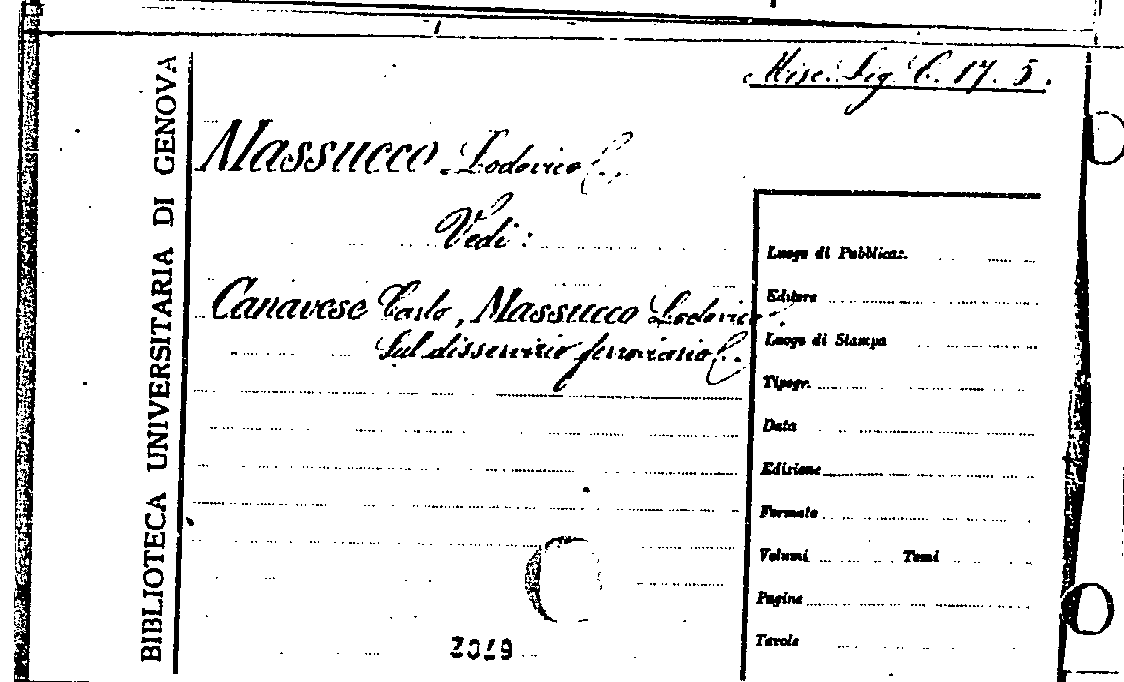 BIBLIOTECA UNIVERSITARIA DI GENOVA
Misc. Lig. C. 17. 5.
Massucco Lodovico
Vedi:
Canavese Carlo, Massucco Lodovico.
Sul disservizio ferroviario
Luogo di Pubblicaz.
Editore
Luogo di Stampa
Tipogr.
Data
Edizione
Formato
Volumi Tomi
Pagine
Tavole